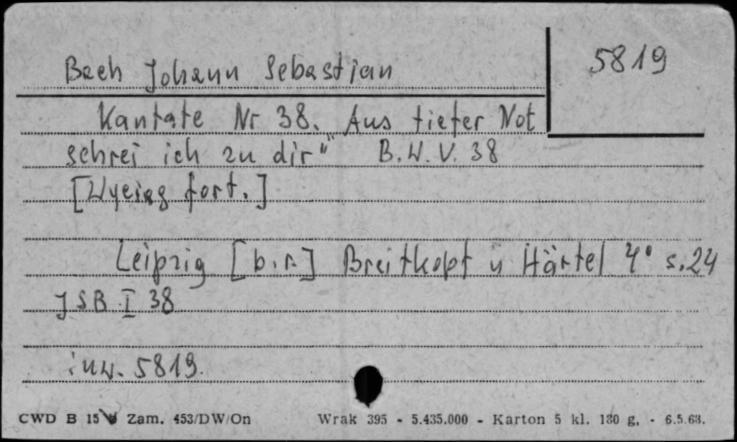 Bach Johann Sebastian
5819
Kantate Nr 38. Aus tiefer Not
schrei ich zu dir" B.W.V. 38
[Wyciąg fort.]
Leipzig [b.r.] Breitkopf u Härtel 4° s. 24
JSB I 38
inw. 5819.
CWD B 15 Zam. 453/DW/On Wrak 395 - 5.435.000 - Karton 5 kl. 180 g. - 6.5.63.